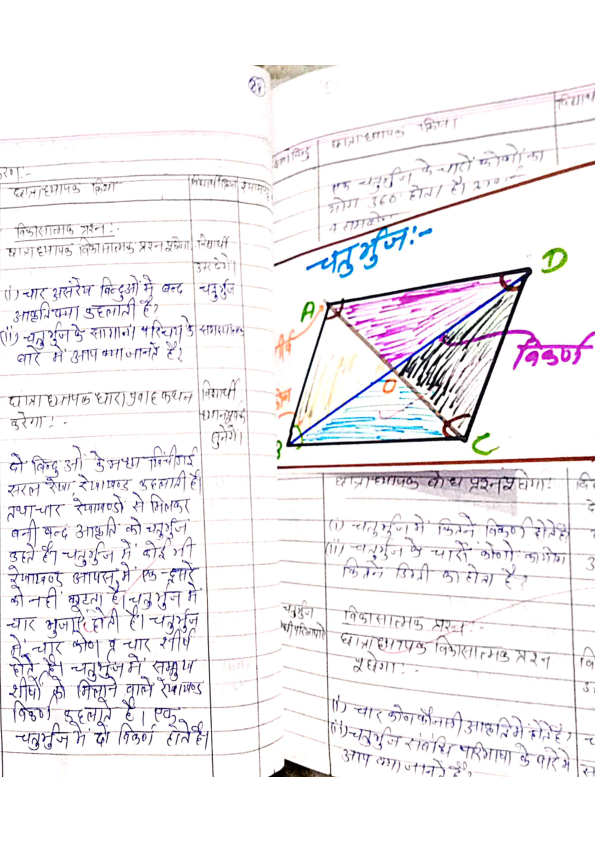 छात्राध्यापक क्रिया
विकासात्मक प्रश्न :-
छात्राध्यापक विकासात्मक प्रश्न पूछेगा। विद्यार्थी
उत्तर देंगे।
(i) चार असंरेख बिन्दुओं में बन्द चतुर्भुज
आकृति क्या कहलाती है?
(ii) चतुर्भुज के सामान्य परिचय के
बारे में आप क्या जानते है?
छात्राध्यापक धारा प्रवाह कथन विद्यार्थी
करेगा :- ध्यानपूर्वक
सुनेंगे।
दो बिन्दुओं के मध्य खिंची गई
सरल रेखा रेखाखण्ड कहलाती है।
तथा चार रेखाखण्डों से मिलकर
बनी बन्द आकृति को चतुर्भुज
कहते है। चतुर्भुज में कोई भी
रेखाखण्ड आपस में एक-दूसरे
को नहीं काटता है। चतुर्भुज में
चार भुजाएं होती है। चतुर्भुज
में चार कोण व चार शीर्ष
होते है। चतुर्भुज में सम्मुख
शीर्षों को मिलाने वाले रेखाखण्ड
विकर्ण कहलाते है। एक
चतुर्भुज में दो विकर्ण होते है।
छात्राध्यापक क्रिया
एक चतुर्भुज के चारों कोणों का
योग 360° होता है।
चतुर्भुज:-
A
D
O
B
C
विकर्ण
छात्राध्यापक बोध प्रश्न पूछेगा :-
(i) चतुर्भुज में कितने विकर्ण होते है।
(ii) चतुर्भुज के चारों कोणों का योग
कितने डिग्री का होता है?
चतुर्भुज
विकासात्मक प्रश्न :-
छात्राध्यापक विकासात्मक प्रश्न
पूछेगा :-
(i) चार कोण कौनसी आकृति में होते है?
(ii) चतुर्भुज संबंधि परिभाषा के बारे में
आप क्या जानते है?